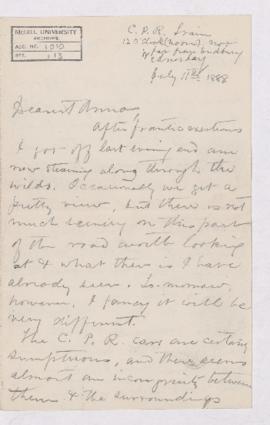 McGILL UNIVERSITY
ARCHIVES
ACC. NO. 1010
REF. 13
C. P. R. Train
12 O'clock (noon) near
not far from Sudbury
Wednesday
July 11th 1888
Dearest Anna
After frantic exertions
I got off last evening and am
now steaming along through the
wilds. Occasionally we get a
pretty view, but there is not
much scenery on this part
of the road worth looking
at & what there is I have
already seen. To-morrow,
however, I fancy it will be
very different.
The C. P. R. cars are certainly
sumptuous, and there seems
almost an incongruity between
them & the surroundings